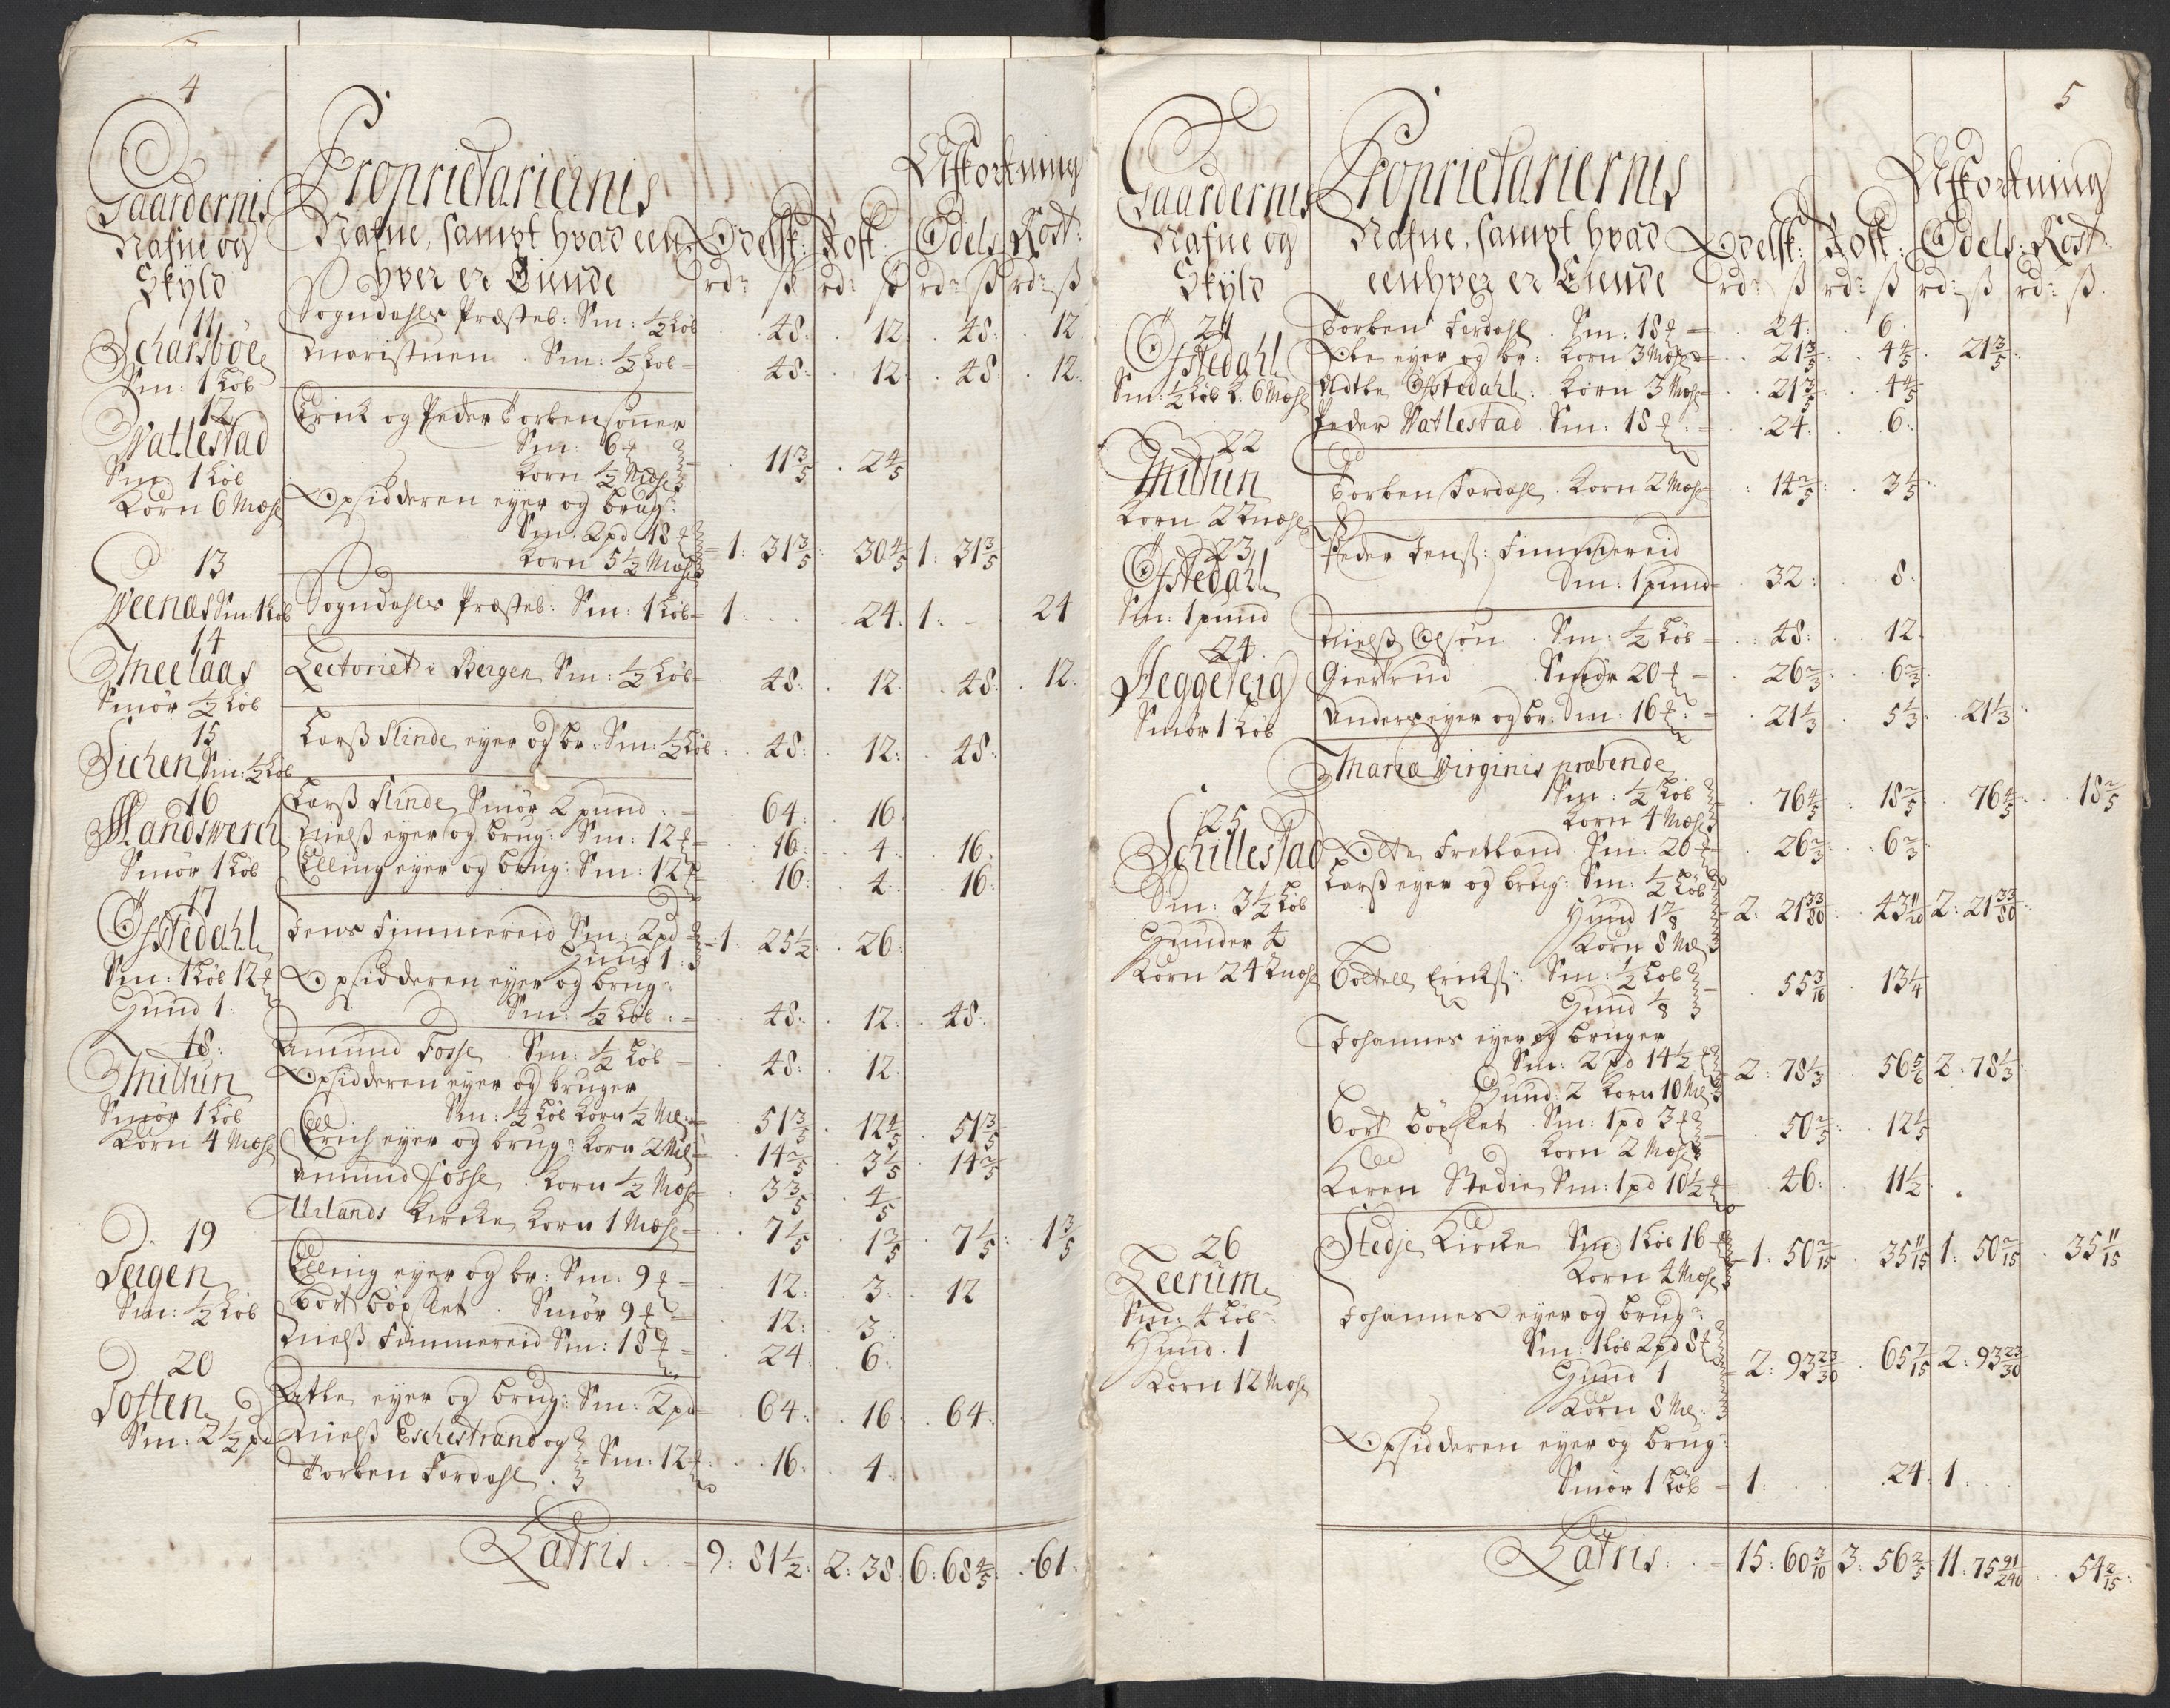 4
Gaardernis Nafne og Skyld
Proprietariernis Nafne, sampt hvad een hver er Eiende
Odelsk: Rost: Afkortning Odels: Rost:
rd: ß rd: ß rd: ß rd: ß
11
Scharsböe
Sm: 1 Löb
Sogndahls Præsteb: Sm: ½ Löb . 48: . 12. . 48: . 12
Maristuen . Sm: ½ Löb . 48: . 12: . 48: . 12.
12
Vatlestad
Sm 1 Löb
Korn 6 Mæhle
Erick og Peder Torbensönner
Sm: 6
Korn ½ Mæhle . 11 3/5 . 2 4/5
Opsidderen eyer og brug:
Sm. 2 pd 18
Korn 5½ Mæhle 1: 31 3/5 30 4/5 1: 31 3/5
13
Veenæs Sm: 1 Löb
Sogndahls Præsteb: Sm: 1 Löb 1: . . 24. 1: . 24
14
Meelaas
Smör ½ Löb
Lectoriet i Bergen Sm: ½ Löb . 48: . 12. . 48: . 12.
15
Sichen Sm: ½ Löb
Larß Slinde eyer og br: Sm: ½ Löb . 48: . 12: . 48:
16
Handsverch
Smör 1 Löb
Larß Slinde Smör 2 pund : 64: . 16.
Nielß eyer og brug: Sm: 12 . 16: . 4. . 16.
Elling eyer og brug: Sm: 12 . 16: . 4 . 16:
17
Öfstedahl
Sm: 1 Löb 12
Hund 1:
Jens Fimmereid Sm: 2 pd
Hund 1: 1: 25½: . 26:
Opsidderen eyer og brug:
Sm: ½ Löb . 48: . 12: . 48:
18:
Mittun
Smör 1 Löb
Korn 4 Mæhle
Amund Fosse . Sm: ½ Löb . 48: . 12.
Opsidderen eyer og bruger
Sm: ½ Löb Korn ½ Ml: . 51 3/5 . 12 4/5 . 51 3/5
Erich eyer og brug: Korn 2 Ml . 14 2/5 . 3 1/5 . 14 2/5
Amund Fosse . Korn ½ Mæhle : 3 3/5 . 4/5
Urlands Kircke Korn 1 Mæhle . 7 1/5 . 1 3/5 . 7 1/5: . 1 3/5
19
Teigen
Sm: ½ Löb
Elling eyer og br: Sm: 9 . 12: . 3: . 12
Sm: Smör 9 . 12: . 3:
Nielß Fimmereid Sm: 18 . 24: . 6:
20
Toften
Sm: 2½ pd
Atle eyer og brug: Sm: 2 pd . 64: . 16. . 64:
Nielß Eschestrand og
Torben Fardahl . Sm: 12 . 16: . 4.
Latris . 9: 81½: 2: 38. 6: 68 4/5 . 61:
5
Gaardernis Nafne og Skyld
Proprietariernis Nafne, sampt hvad eenhver er Eiende
Odelsk: Rost: Afkortning Odels: Rost:
rd: ß rd: ß rd: ß rd: ß
21
Öfstedahl
Sm: ½ Löb K: 6 Mæhle
Torben Fardahl . Sm: 18 . 24: . 6.
Ole eyer og br: Korn 3 Mæhle . 21 3/5: . 4 4/5 . 21 3/5:
Adtle Öfstedahl: Korn 3 Mæhle . 21 3/5 . 4 4/5
Peder Vatlestad . Sm: 18 . 24: . 6:
22
Mittun
Korn 2 Mæhle
Torben Fardahl . Korn 2 Mæhle : 14 2/5: . 3 1/5
23
Öfstedahl
Sm: 1 pund
Peder Jenß: Fimmereid
Sm: 1 pund . 32: . 8.
24
Heggeteig
Smör 1 Löb
Nielß Olsön . Sm: ½ Löb . 48: . 12.
Giertrud . Smör 20 . 26 2/3: . 6 2/3.
Anders eyer og br: Sm: 16 . 21 1/3 . 5 1/3 . 21 1/3:
25
Schillestad
Sm: 3½ Löb
Hunder 4
Korn 24 Mæhle
Maria Virginis præbende
Sm: ½ Löb
Korn 4 Mæhle . 76 4/5 : 18 2/5 : 76 4/5: . 18 2/5
Ole Fretland . Sm: 20 . 26 2/3 . 6 2/3
Larß eyer og brug: Sm: ½ Löb
Hund 1 7/8
Korn 8 Ml 2: 21 33/80 . 43 11/20 2: 21 33/80
Sm: ½ Löb
Hund 1/8 . 55 3/16 . 13 1/4
Johannes eyer og bruger
Sm: 2 pd 14½
Hund: 2 Korn 10 Ml: 2: 78 1/3 . 56 5/6 2: 78 1/3
Sm: 1 pd 3
Korn 2 Mæhle . 50 2/5 . 12 1/5
Karen Stedie Sm: 1 pd 10½ . 46: . 11½ .
26
Leerum
Sm: 4 Löb:
Hund . 1
Korn 12 Mæhle
Stedje Kircke . Sm: 1 Löb 16
Korn 4 Mæhle 1: 50 2/15 . 35 11/15 1: 50 2/15 . 35 11/15
Johannes eyer og brug:
Sm: 1 Löb 2 pd 8
Hund 1
Korn 8 Ml: 2: 93 23/30 . 65 7/15 2: 93 23/30
Opsidderen eyer og brug:
Smör 1 Löb 1: . . 24. 1 . .
Latris: . 15: 60 3/10 3: 56 2/5: 11: 75 91/240 . 54 2/15: